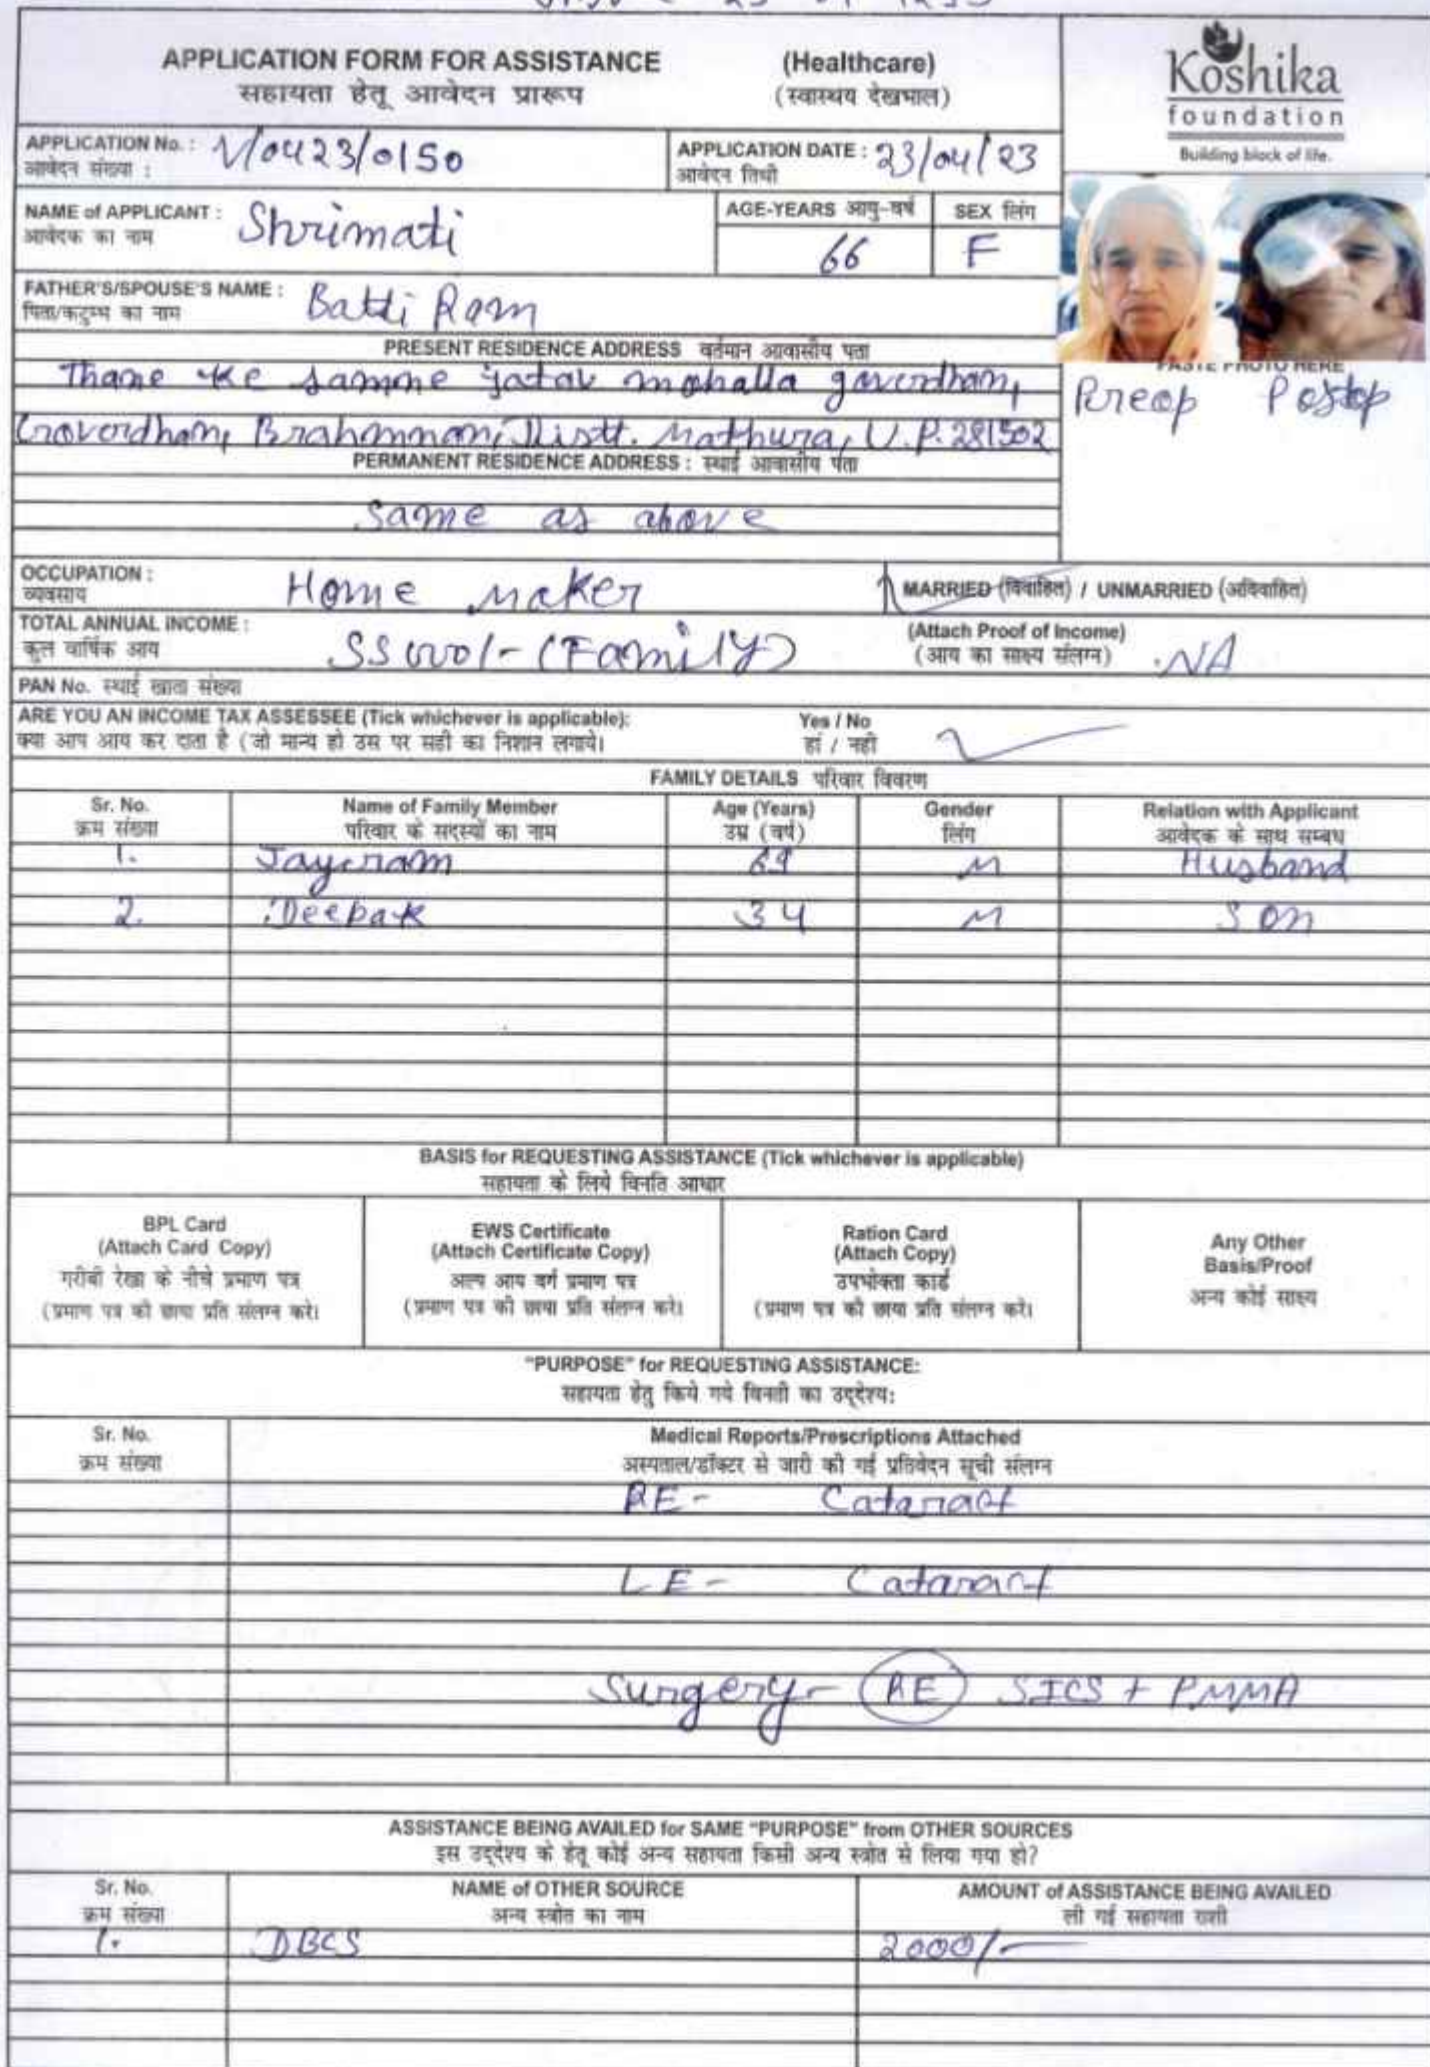 APPLICATION FORM FOR ASSISTANCE (Healthcare)
सहायता हेतू आवेदन प्रारूप (स्वास्थय देखभाल)
Koshika
foundation
Building block of life.
APPLICATION No. : V/0423/0150 APPLICATION DATE : 23/04/23
आवेदन संख्या : आवेदन तिथी
NAME of APPLICANT : Shrimati AGE-YEARS आयु-वर्ष SEX लिंग
आवेदक का नाम 66 F
FATHER'S/SPOUSE'S NAME : Batti Ram
पिता/कटुम्ब का नाम
PRESENT RESIDENCE ADDRESS वर्तमान आवासीय पता
PASTE PHOTO HERE
Thane ke samne jatav mohalla goverdham,
Preop Postop
Goverdham, Brahmman, Distt. Mathura, U.P. 281502
PERMANENT RESIDENCE ADDRESS : स्थाई आवासीय पता
same as above
OCCUPATION : Home maker MARRIED (विवाहित) / UNMARRIED (अविवाहित)
व्यवसाय
TOTAL ANNUAL INCOME : 55000/- (Family) (Attach Proof of Income) NA
कुल वार्षिक आय (आय का साक्ष्य संलग्न)
PAN No. स्थाई खाता संख्या
ARE YOU AN INCOME TAX ASSESSEE (Tick whichever is applicable): Yes / No
क्या आप आय कर दाता है (जो मान्य हो उस पर सही का निशान लगाये। हां / नही
FAMILY DETAILS परिवार विवरण
Sr. No. Name of Family Member Age (Years) Gender Relation with Applicant
क्रम संख्या परिवार के सदस्यों का नाम उम्र (वर्ष) लिंग आवेदक के साथ सम्बध
1. Jayram 69 M Husband
2. Deepak 34 M Son
BASIS for REQUESTING ASSISTANCE (Tick whichever is applicable)
सहायता के लिये विनति आधार
BPL Card
(Attach Card Copy)
गरीबी रेखा के नीचे प्रमाण पत्र
(प्रमाण पत्र की छाया प्रति संलग्न करे।
EWS Certificate
(Attach Certificate Copy)
अल्प आय वर्ग प्रमाण पत्र
(प्रमाण पत्र की छाया प्रति संलग्न करे।
Ration Card
(Attach Copy)
उपभोक्ता कार्ड
(प्रमाण पत्र की छाया प्रति संलग्न करे।
Any Other
Basis/Proof
अन्य कोई साक्ष्य
"PURPOSE" for REQUESTING ASSISTANCE:
सहायता हेतु किये गये विनती का उद्देश्य:
Sr. No. Medical Reports/Prescriptions Attached
क्रम संख्या अस्पताल/डॉक्टर से जारी की गई प्रतिवेदन सूची संलग्न
RE - Cataract
LE - Cataract
Surgery - RE SICS + PMMA
ASSISTANCE BEING AVAILED for SAME "PURPOSE" from OTHER SOURCES
इस उद्देश्य के हेतू कोई अन्य सहायता किसी अन्य स्त्रोत से लिया गया हो?
Sr. No. NAME of OTHER SOURCE AMOUNT of ASSISTANCE BEING AVAILED
क्रम संख्या अन्य स्त्रोत का नाम ली गई सहायता राशी
1. DBCS 2000/-